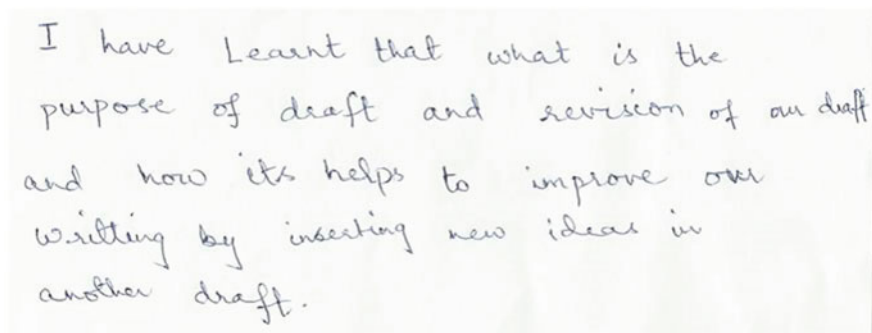 I have Learnt that what is the
purpose of draft and revision of our draft
and how its helps to improve our
writting by inserting new ideas in
another draft.